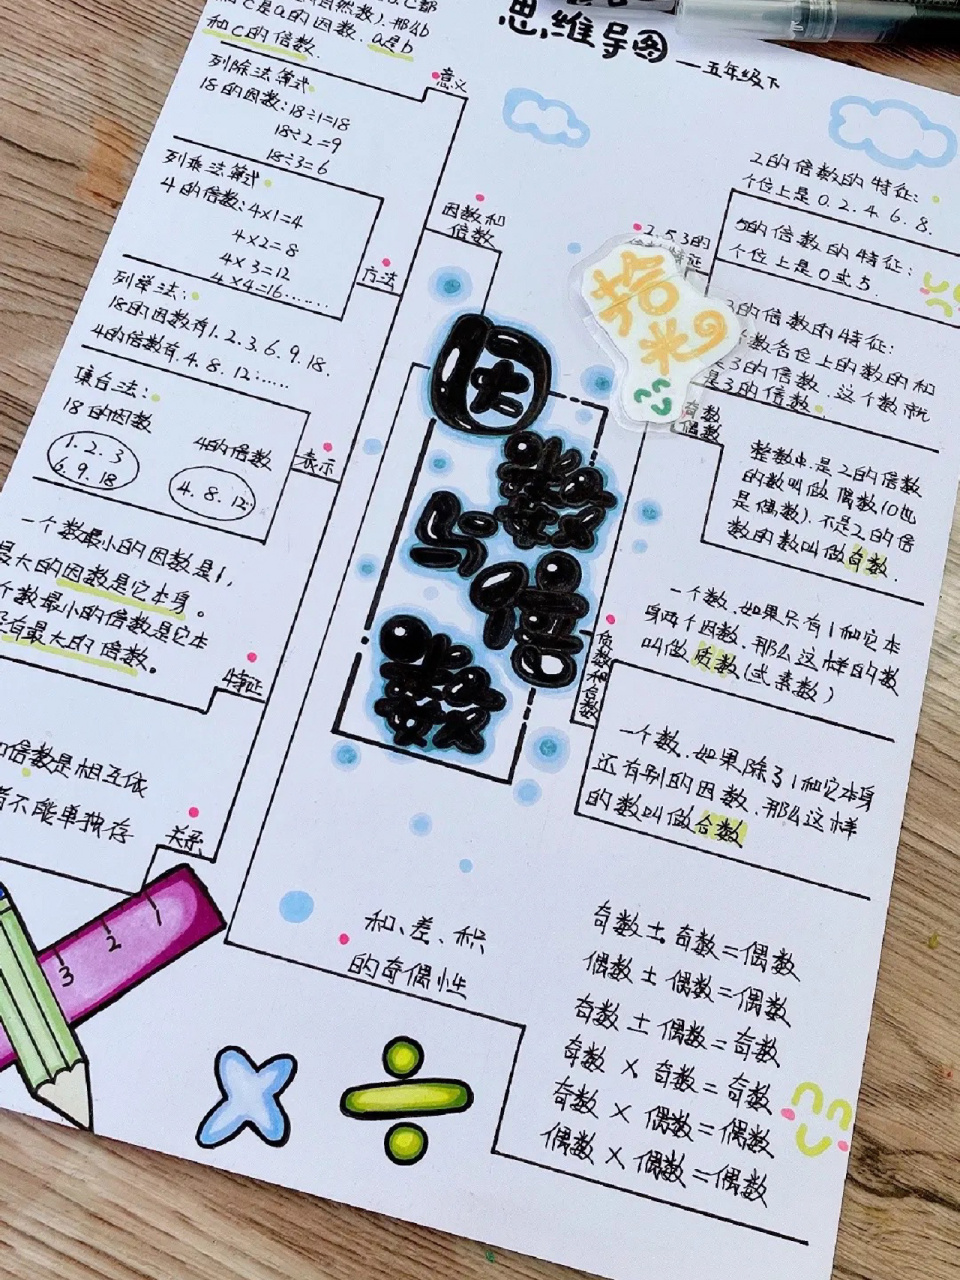 思维导图
—五年级下
和c是a的因数,a是b
和c的倍数.
意义
列除法算式.
18的因数:18÷1=18
18÷2=9
18÷3=6
列乘法算式.
4的倍数:4×1=4
4×2=8
4×3=12
4×4=16……
方法
列举法:
18的因数有1.2.3.6.9.18.
4的倍数有.4.8.12……
集合法:
18的因数
1.2.3
6.9.18
4的倍数
4.8.12
表示
一个数最小的因数是1,
最大的因数是它本身。
个数最小的倍数是它本
没有最大的倍数。
特征
和倍数是相互依
者不能单独存
关系
因数和
倍数
因数与倍数
2.5.3的
拾米
2的倍数的特征:
个位上是0.2.4.6.8.
5的倍数的特征:
个位上是0或5.
3的倍数的特征:
数各位上的数的和
是3的倍数.这个数就
是3的倍数.
奇数
偶数
整数中.是2的倍数
的数叫做偶数(0也
是偶数).不是2的倍
数的数叫做奇数.
质数和合数
一个数.如果只有1和它本
身两个因数.那么这样的数
叫做质数(或素数)
一个数.如果除了1和它本身
还有别的因数.那么这样
的数叫做合数
和、差、积
的奇偶性
奇数±奇数=偶数
偶数±偶数=偶数
奇数±偶数=奇数
奇数×奇数=奇数
奇数×偶数=偶数
偶数×偶数=偶数
1
2
3
×
÷